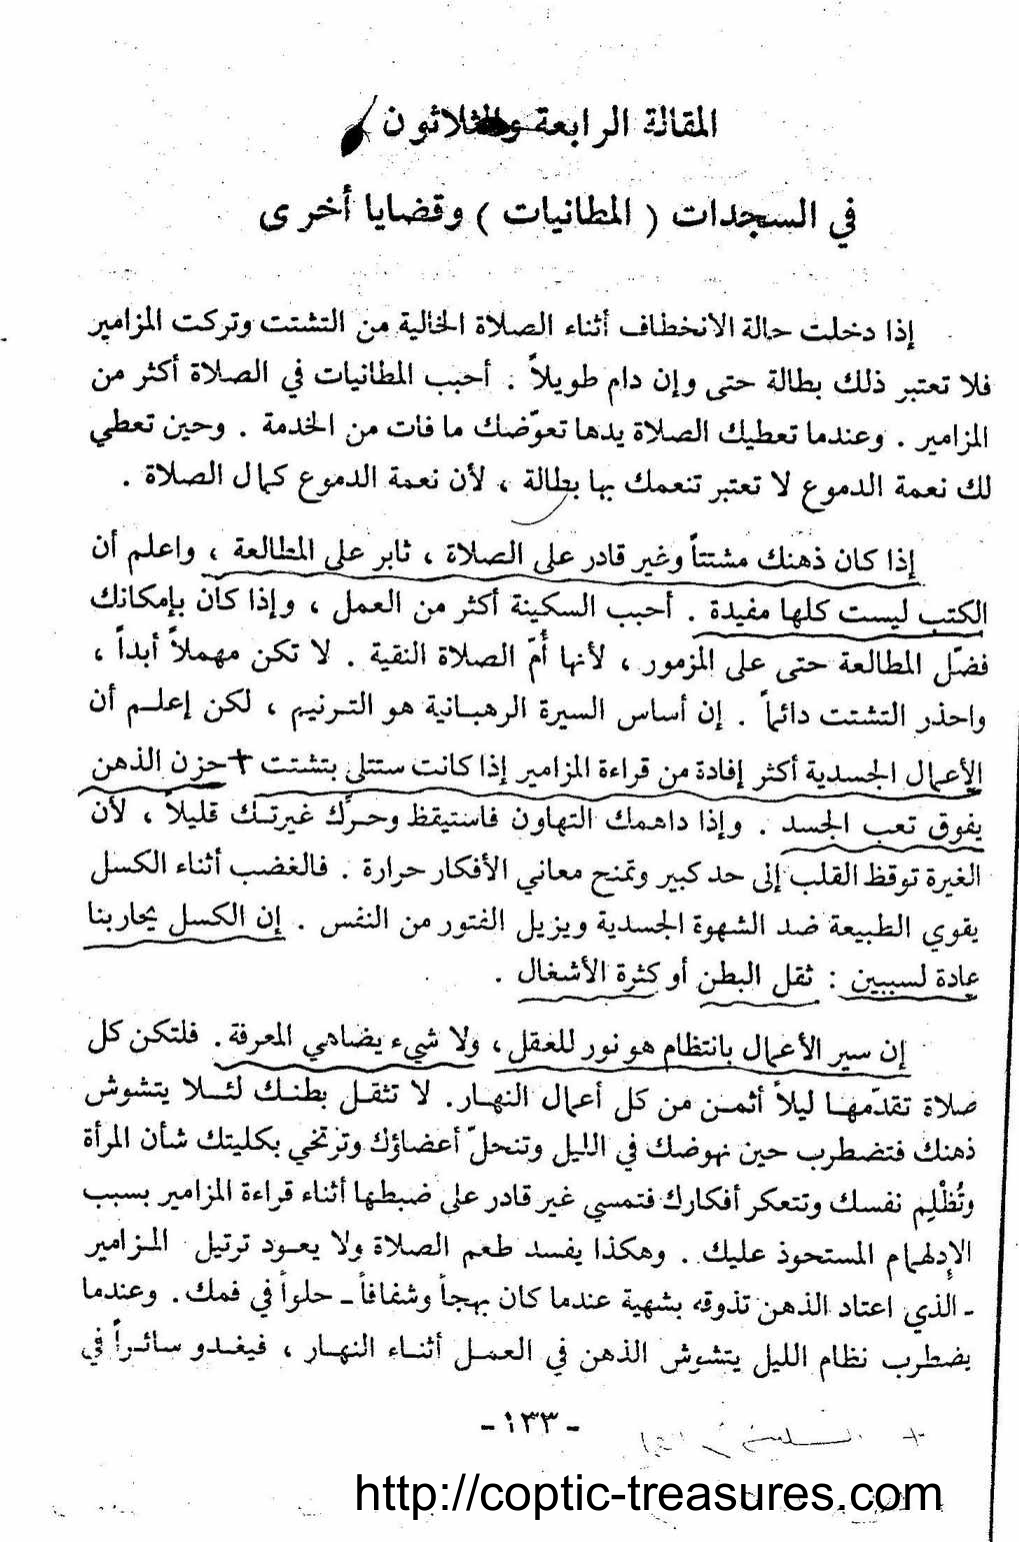 المقالة الرابعة والثلاثون
في السجدات ( المطانيات ) وقضايا أخرى
إذا دخلت حالة الانخطاف أثناء الصلاة الخالية من التشتت وتركت المزامير
فلا تعتبر ذلك بطالة حتى وإن دام طويلاً . أحبب المطانيات في الصلاة أكثر من
المزامير . وعندما تعطيك الصلاة يدها تعوّضك ما فات من الخدمة . وحين تعطي
لك نعمة الدموع لا تعتبر تنعمك بها بطالة ، لأن نعمة الدموع كمال الصلاة .
إذا كان ذهنك مشتتاً وغير قادر على الصلاة ، ثابر على المطالعة ، واعلم أن
الكتب ليست كلها مفيدة . أحبب السكينة أكثر من العمل ، وإذا كان بإمكانك
فضّل المطالعة حتى على المزمور ، لأنها أُمّ الصلاة النقية . لا تكن مهملاً أبداً ،
واحذر التشتت دائماً . إن أساس السيرة الرهبانية هو الترنيم ، لكن إعلم أن
الأعمال الجسدية أكثر إفادة من قراءة المزامير إذا كانت ستتلى بتشتت + حزن الذهن
يفوق تعب الجسد . وإذا داهمك التهاون فاستيقظ وحرِّك غيرتك قليلاً ، لأن
الغيرة توقظ القلب إلى حد كبير وتمنح معاني الأفكار حرارة . فالغضب أثناء الكسل
يقوي الطبيعة ضد الشهوة الجسدية ويزيل الفتور من النفس . إن الكسل يحاربنا
عادة لسببين : ثقل البطن أو كثرة الأشغال .
إن سير الأعمال بانتظام هو نور للعقل ، ولا شيء يضاهي المعرفة . فلتكن كل
صلاة تقدّمها ليلاً أثمن من كل أعمال النهار . لا تثقل بطنك لئلا يتشوش
ذهنك فتضطرب حين نهوضك في الليل وتنحلّ أعضاؤك وترتخي بكليتك شأن المرأة
وتُظْلِم نفسك وتتعكر أفكارك فتمسي غير قادر على ضبطها أثناء قراءة المزامير بسبب
الإدلهمام المستحوذ عليك . وهكذا يفسد طعم الصلاة ولا يعود ترتيل المزامير
ـ الذي اعتاد الذهن تذوقه بشهية عندما كان بهجاً وشفافاً ـ حلواً في فمك . وعندما
يضطرب نظام الليل يتشوش الذهن في العمل أثناء النهار ، فيغدو سائراً في
- ١٣٣ -
+
http://coptic-treasures.com